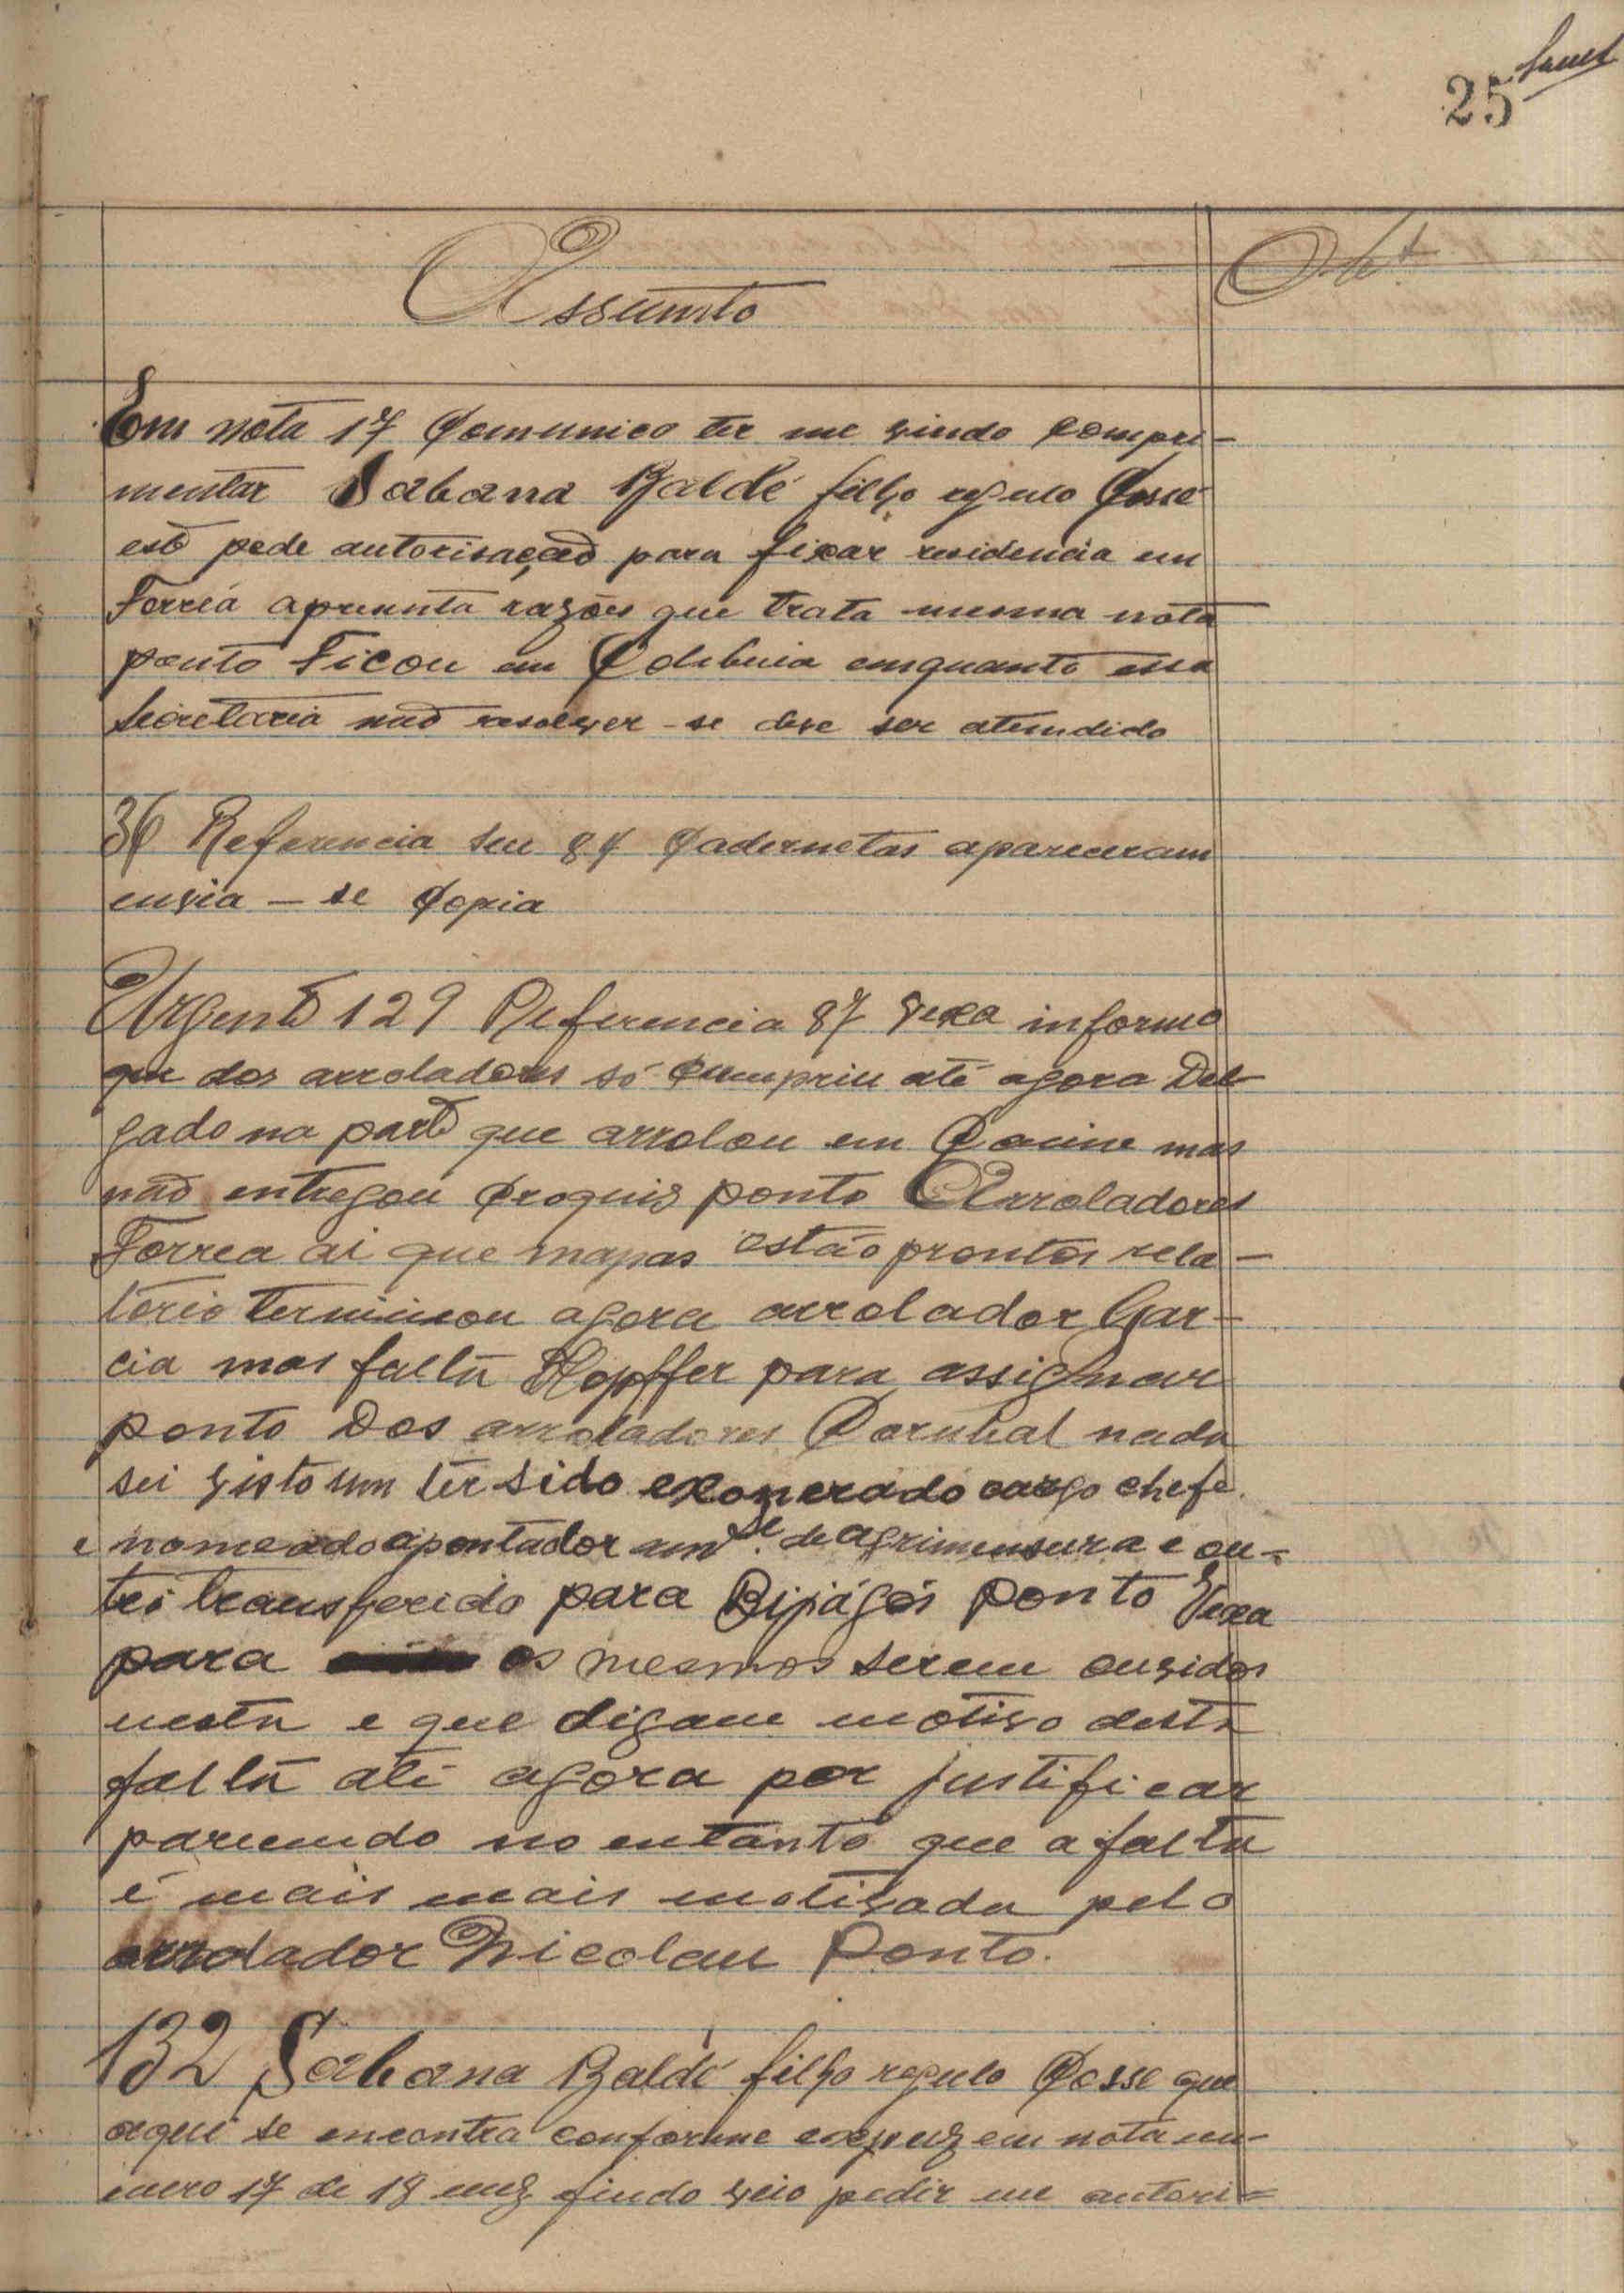 25
Assumto
Obs
Em nota 17 Comunico ter me vindo compri-
mentar Sabana Baldé filho regulo Cossé
este pede autorisação para fixar residencia em
Forreá apresenta razões que trata mesma nota
ponto Ficou em Colibuia emquanto essa
Secretaria não resolver-se deve ser atendido
36 Referencia seu 84 Cadernetas apareceram
envia-se Copia
Urgente 129 Referencia 87 Vexa informo
que dos arroladores só Cumpriu até agora Del-
gado na parte que arrolou em Cacine mas
não entregou Croquis ponto Arroladores
Forrea ai que mapas estão prontos rela-
torio terminou agora arrolador Gar-
cia mas falta Hopffer para assignar
ponto Dos arroladores Corubal nada
sei visto um ter sido exonerado cargo chefe
e nomeado apontador de agrimensura e ou-
tro transferido para Bijágós ponto Vexa
para os mesmos serem ouvidos
nesta e que digam motivo desta
falta até agora por justificar
parecendo no entanto que a falta
é mais mais motivada pelo
arrolador Nicolau Ponto.
132 Sabana Baldé filho regulo Cosse que
aqui se encontra conforme expuz em nota nu-
mero 17 de 18 mez findo veio pedir me autori=